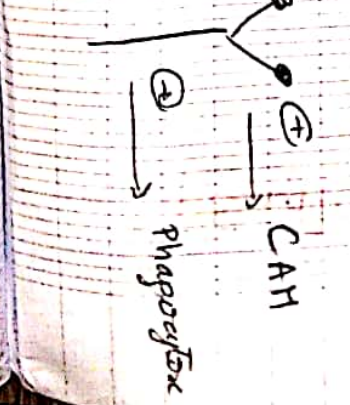 +
CAM
+
Phagocytox